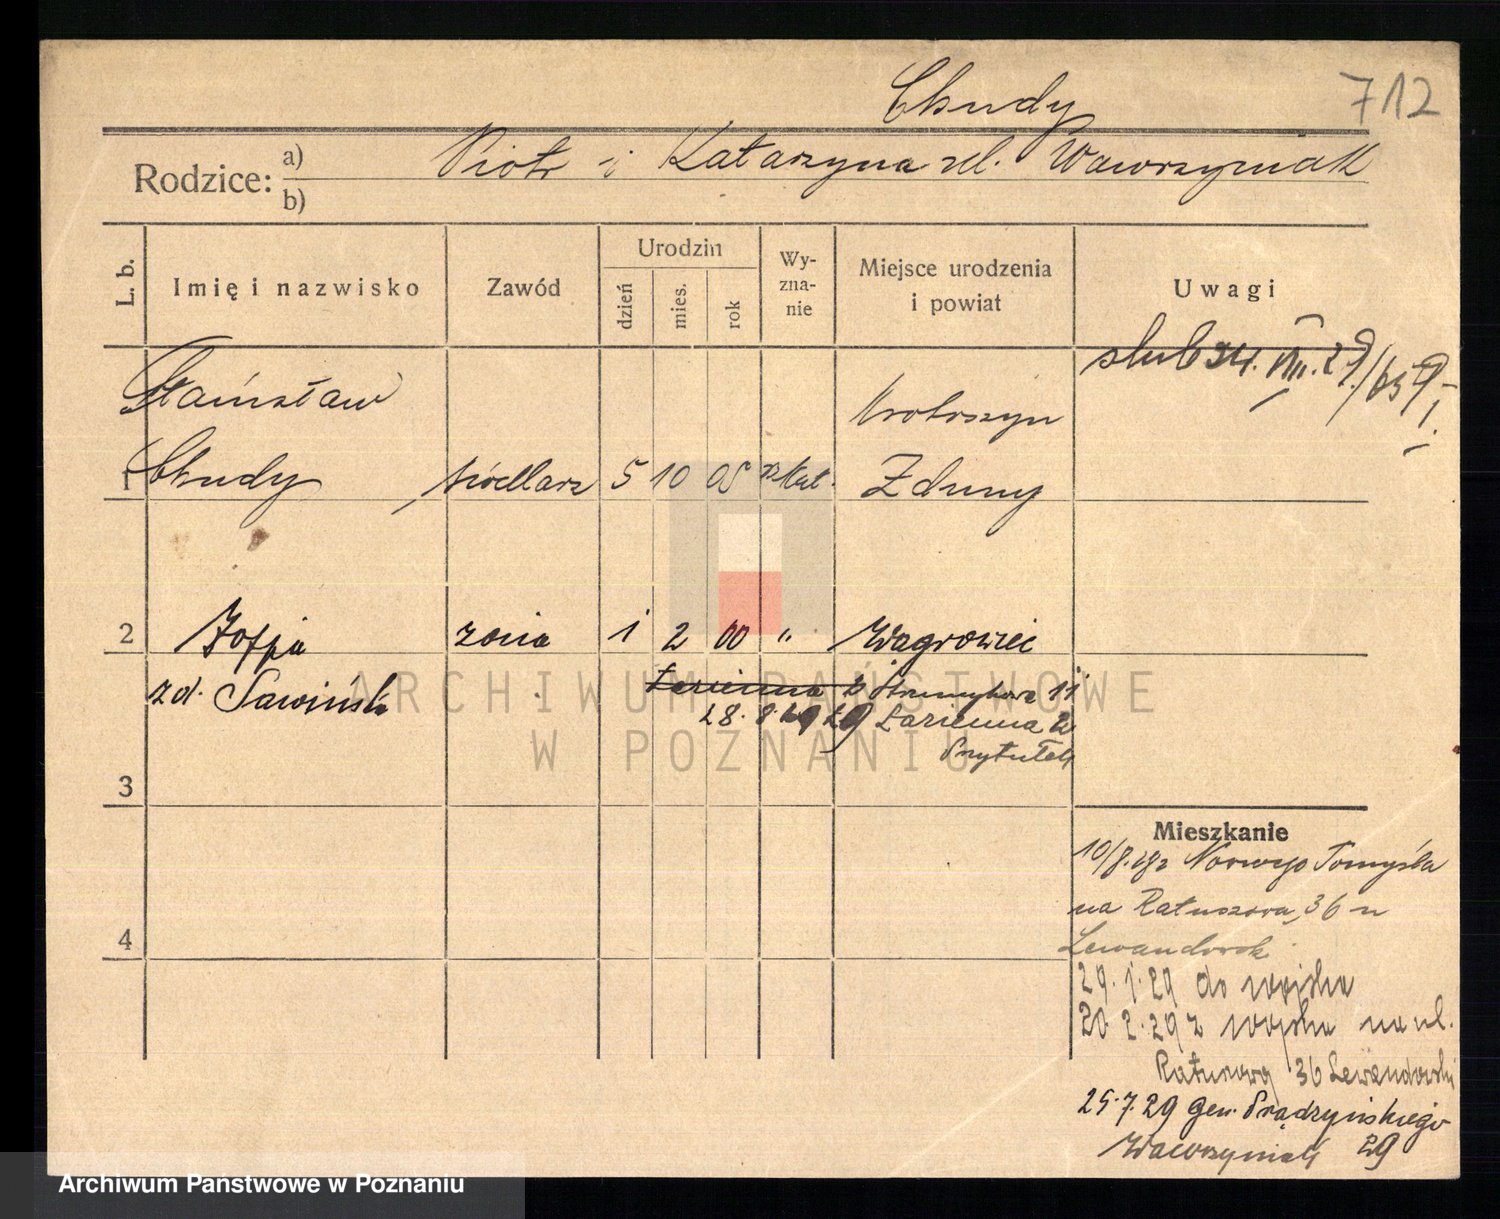 Chudy
712
Rodzice: a) Piotr i Katarzyna zd. Wawrzyniak
b)
L. b.
Imię i nazwisko
Zawód
Urodzin
dzień
mies.
rok
Wy-
zna-
nie
Miejsce urodzenia
i powiat
Uwagi
ślub 24. VIII. 29./659
Stanisław
Krotoszyn
1 Chudy 5 10 08 rz kat. Zduny
2 Zofja żona 1 2 00 " Wągrowiec
zd. Sawińsk
Łazienna 11
28. 8. 29 Łazienna 2
Przytułek
3
Mieszkanie
10/8. z Nowego Tomyśla
na Ratuszowa 36 u
Lewandowsk
4
29. 1. 29 do wojska
20. 2. 29 z wojska na ul.
Ratuszową 36 Lewandowski
25. 7. 29 gen. Prądzyńskiego
Wawrzyniak 29
ARCHIWUM PAŃSTWOWE
W POZNANIU
Archiwum Państwowe w Poznaniu